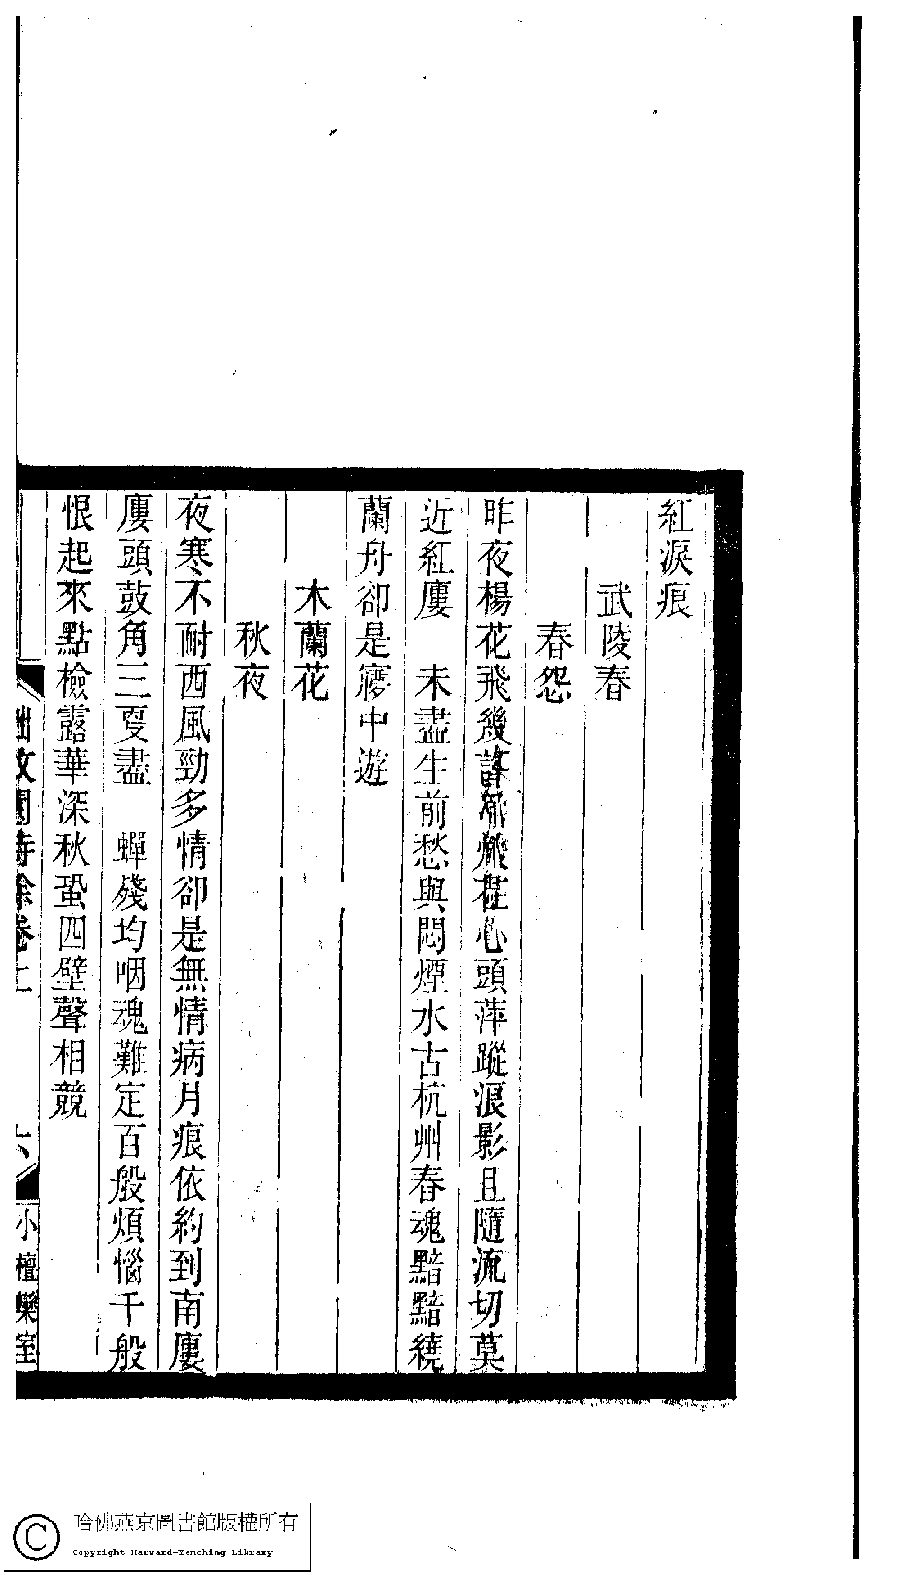 紅淚痕
武陵春
春怨
昨夜楊花飛幾許在心頭萍蹤浪影且隨流切莫
近紅廔　未盡生前愁與悶煙水古杭州春魂黯黯繞
蘭舟卻是㝱中遊
木蘭花
秋夜
夜寒不耐西風勁多情卻是無情病月痕依約到南廔
廔頭鼓角三㪅盡　蟬殘均咽魂難定百般煩惱千般
恨起來點檢露華深秋蛩四壁聲相競
拙政園詩餘卷上　六　小檀欒室
哈佛燕京圖書館版權所有
Copyright Harvard-Yenching Library